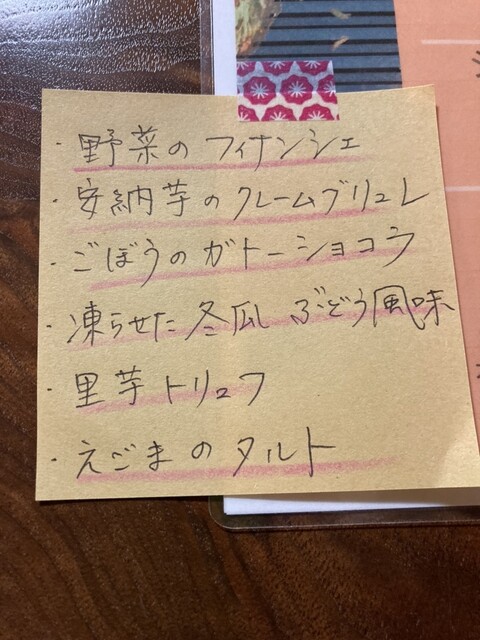 ・野菜のフィナンシェ
・安納芋のクレームブリュレ
・ごぼうのガトーショコラ
・凍らせた冬瓜 ぶどう風味
・里芋トリュフ
・えごまのタルト